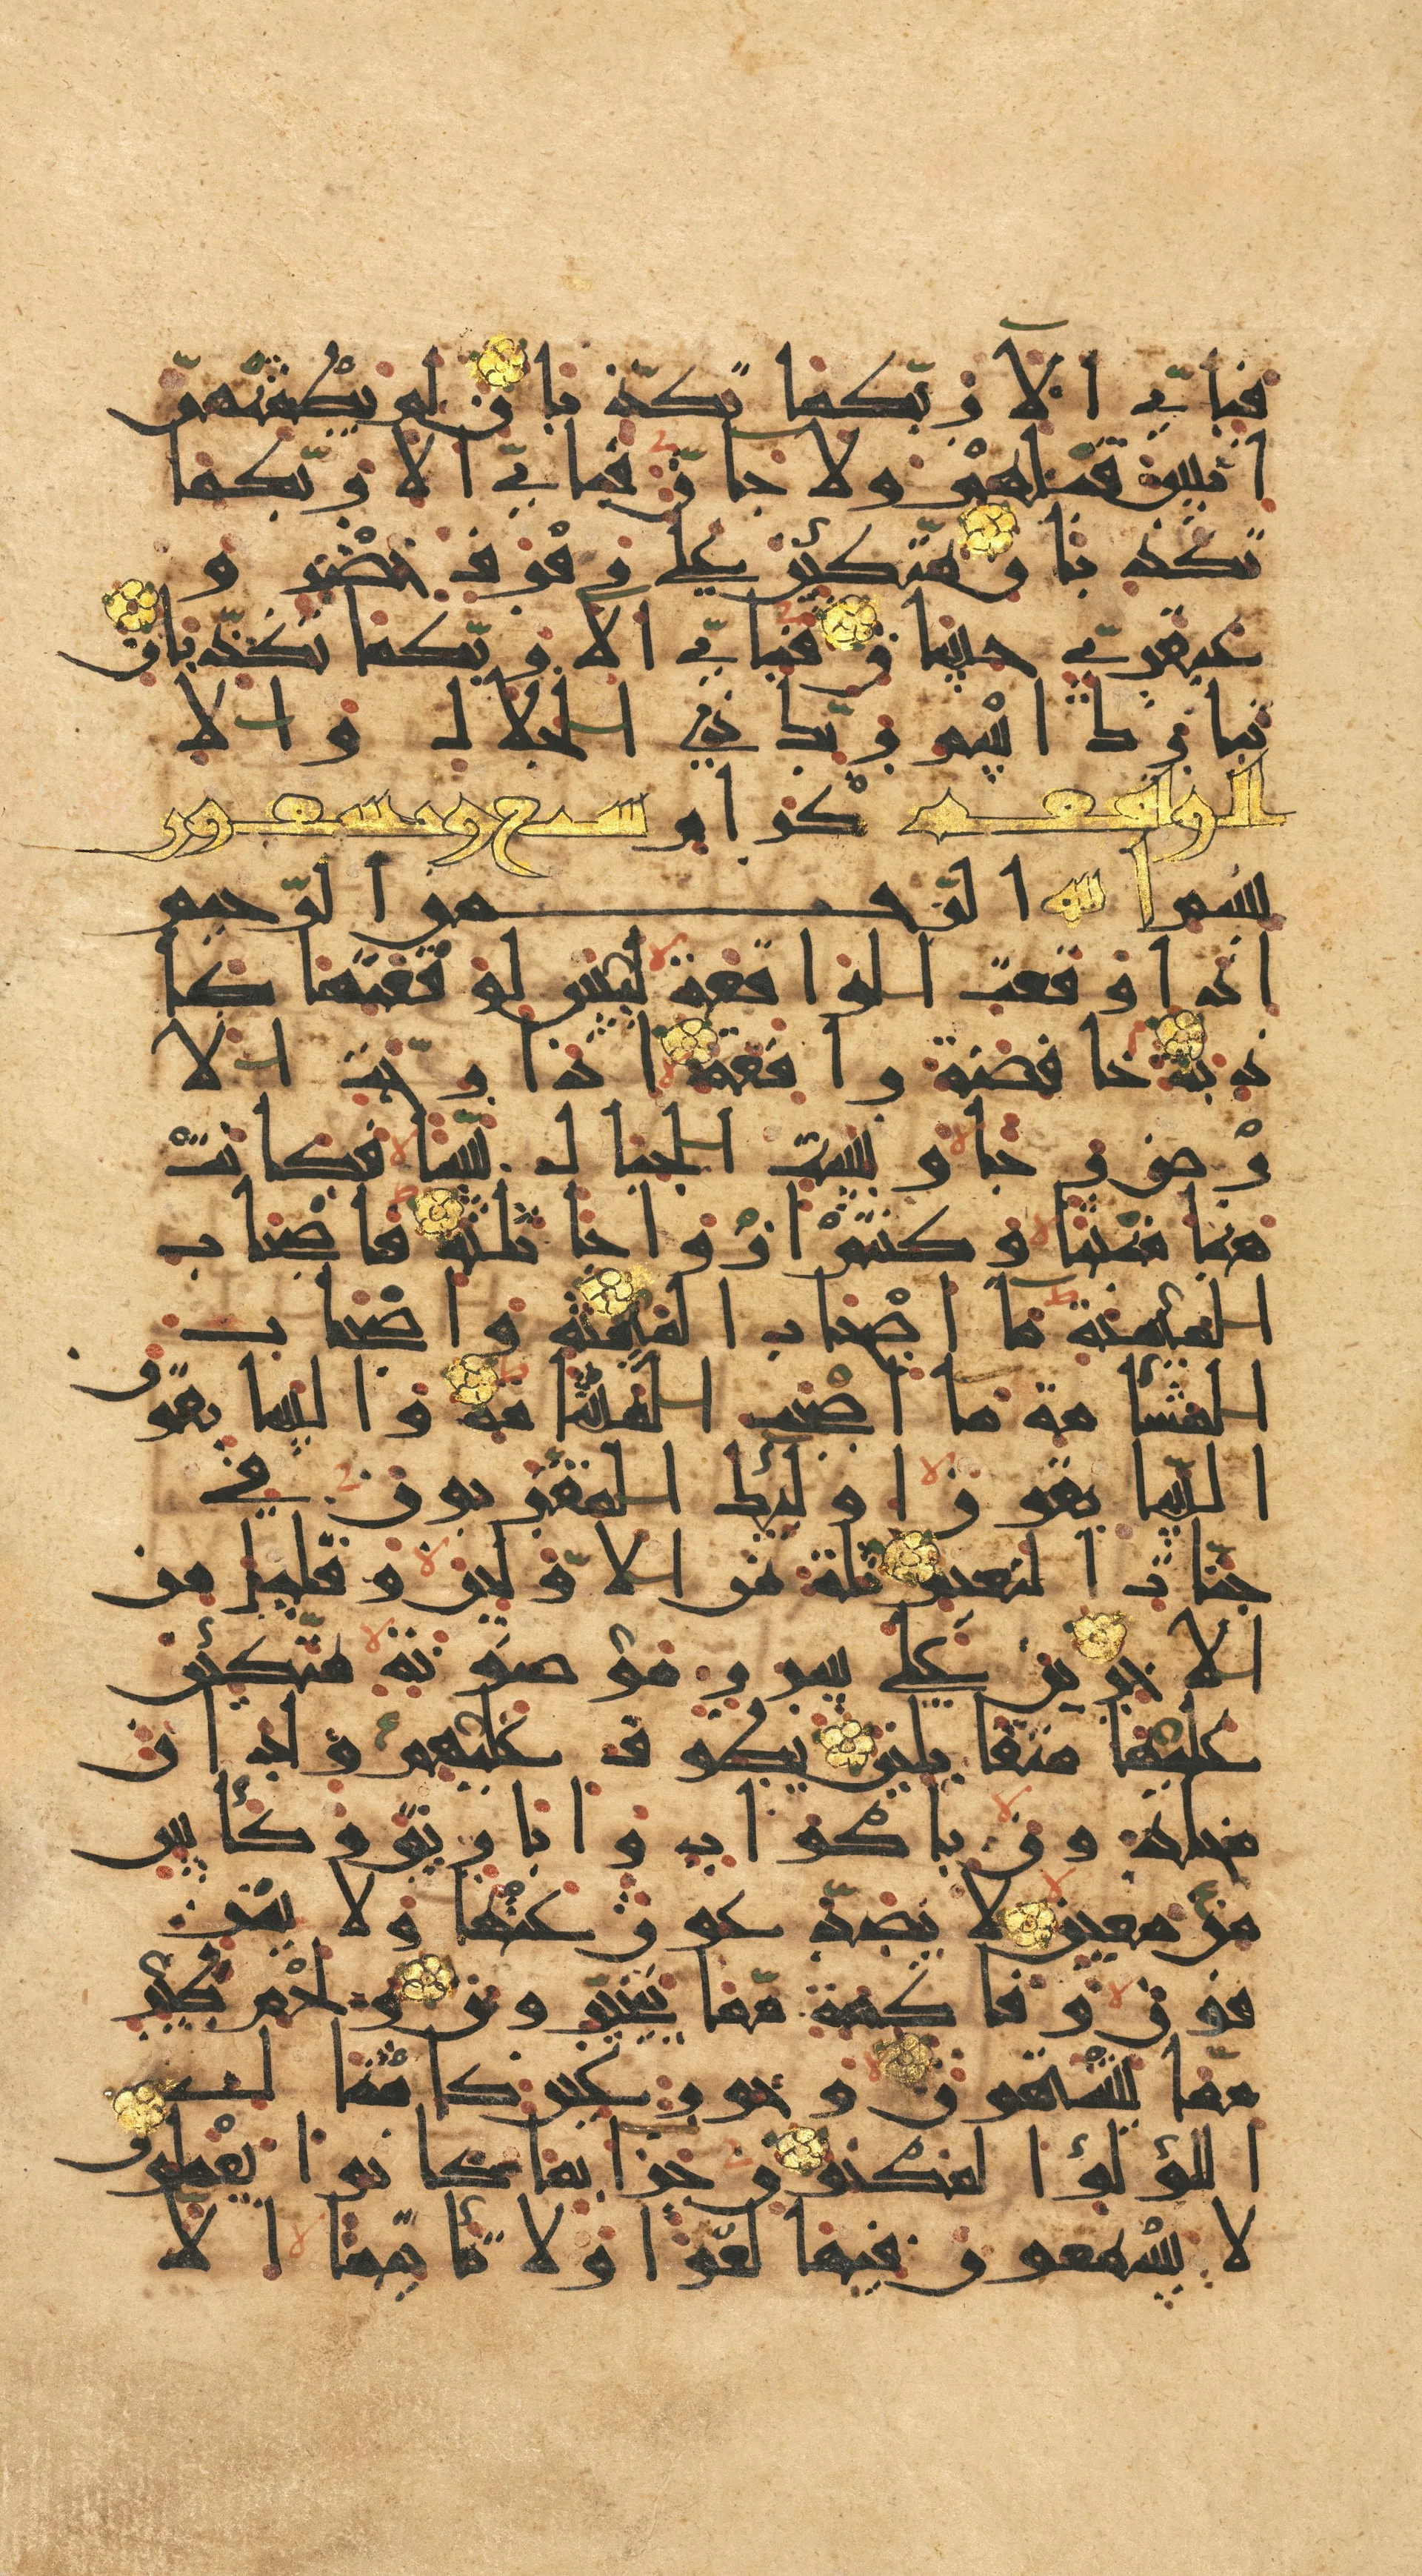 فباي الا ربكما تكذبان لم يطمثهن
انس قبلهم ولا جان فباي الا ربكما
تكذبان متكئين على رفرف خضر و
عبقري حسان فباي الا ربكما تكذبان
تبارك اسم ربك ذي الجلال والا
الواقعة كرام سبع وتسعون
بسم الله الرحمن الرحيم
اذا وقعت الواقعة ليس لوقعتها كا
ذبة خافضة رافعة اذا رجت الا
رض رجا وبست الجبال بسا فكانت
هبا منبثا وكنتم ازواجا ثلثة فاصحاب
الميمنة ما اصحاب الميمنة واصحاب
المشأمة ما اصحب المشأمة والسابقون
السابقون اولئك المقربون في
جنات النعيم ثلة من الاولين وقليل من
الاخرين على سرر موضونة متكئين
عليها متقابلين يطوف عليهم ولدان
مخلدون باكواب واباريق وكأس
من معين لا يصدعون عنها ولا ينز
فون وفاكهة مما يتخيرون ولحم طير
مما يشتهون وحور عين كامثا ل
اللؤلؤا المكنون جزا بما كانوا يعملون
لا يسمعون فيها لغوا ولا تأثيما الا